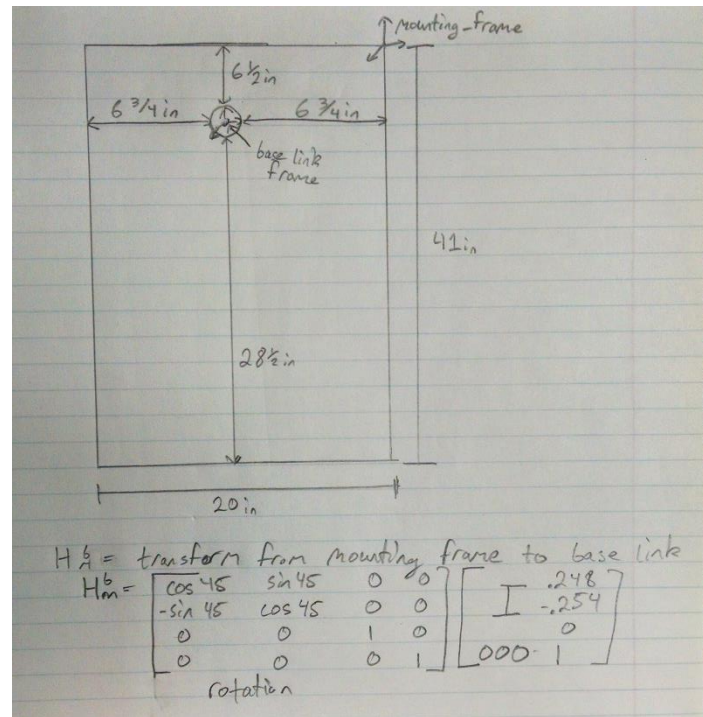 mounting-frame
6 1/2 in
6 3/4 in
6 3/4 in
base link
frame
41in
28 1/2 in
20in
H b m = transform from mounting frame to base link
H b m = [ cos 45 sin 45 0 0 ] [ I .248 ]
-sin 45 cos 45 0 0 -.254
0 0 1 0 0
0 0 0 1 000 1
rotation